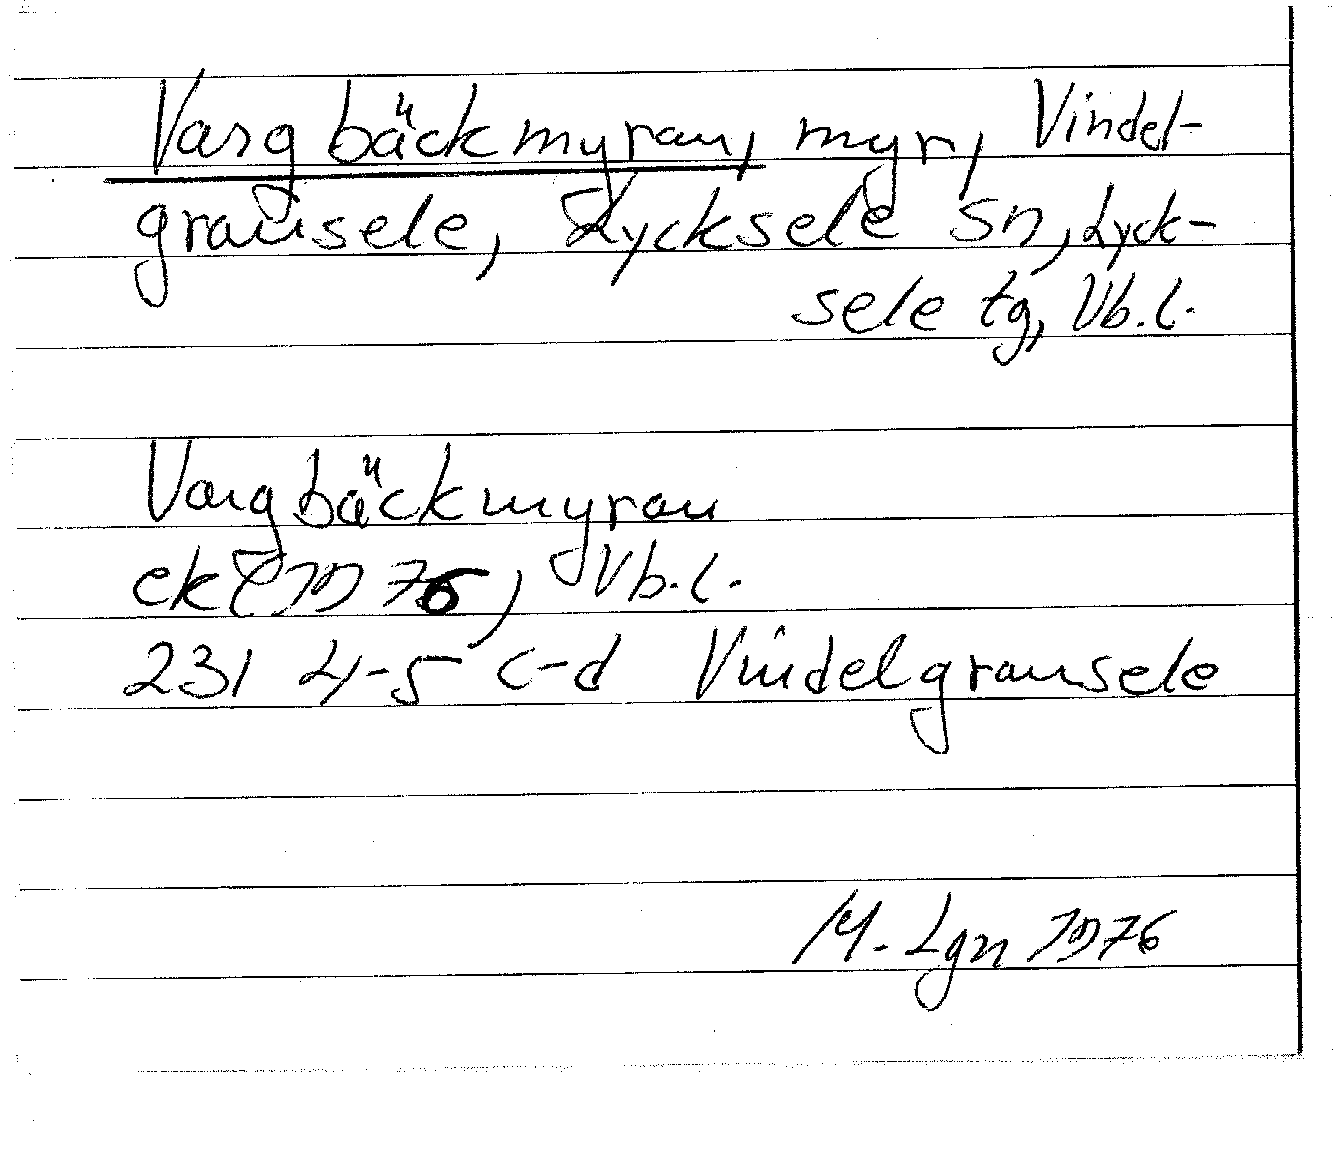 Vargbäckmyran, myr, Vindel-
gransele, Lycksele sn, Lyck-
sele tg, Vb.l.
Vargbäckmyran
ek (1976), Vb.l.
231 4-5 c-d Vindelgransele
M. Lgn 1976